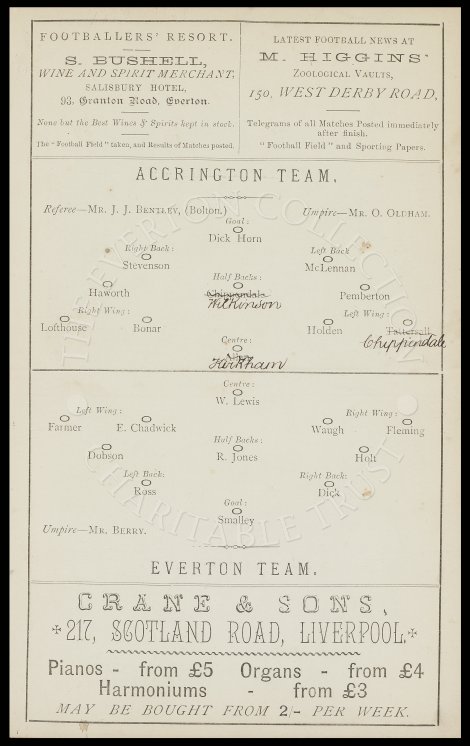 FOOTBALLERS' RESORT.
S. BUSHELL,
WINE AND SPIRIT MERCHANT,
SALISBURY HOTEL,
93, Granton Road, Everton.
None but the Best Wines & Spirits kept in stock.
The "Football Field" taken, and Results of Matches posted.
LATEST FOOTBALL NEWS AT
M. HIGGINS'
ZOOLOGICAL VAULTS,
150, WEST DERBY ROAD,
Telegrams of all Matches Posted immediately
after finish.
"Football Field" and Sporting Papers.
ACCRINGTON TEAM.
Referee—MR. J. J. BENTLEY, (Bolton.) Umpire—MR. O. OLDHAM.
Goal:
Dick Horn
Right Back: Left Back
Stevenson McLennan
Half Backs:
Haworth Chippendale Pemberton
Wilkinson
Right Wing: Left Wing:
Lofthouse Bonar Holden Tattersall
Chippendale
Centre:
Kirkham
Centre:
W. Lewis
Left Wing: Right Wing:
Farmer E. Chadwick Waugh Fleming
Half Backs:
Dobson R. Jones Holt
Left Back: Right Back:
Ross Dick
Goal:
Smalley
Umpire—MR. BERRY.
EVERTON TEAM.
CRANE & SONS,
217, SCOTLAND ROAD, LIVERPOOL.
Pianos - from £5 Organs - from £4
Harmoniums - from £3
MAY BE BOUGHT FROM 2/- PER WEEK.
THE EVERTON COLLECTION
CHARITABLE TRUST